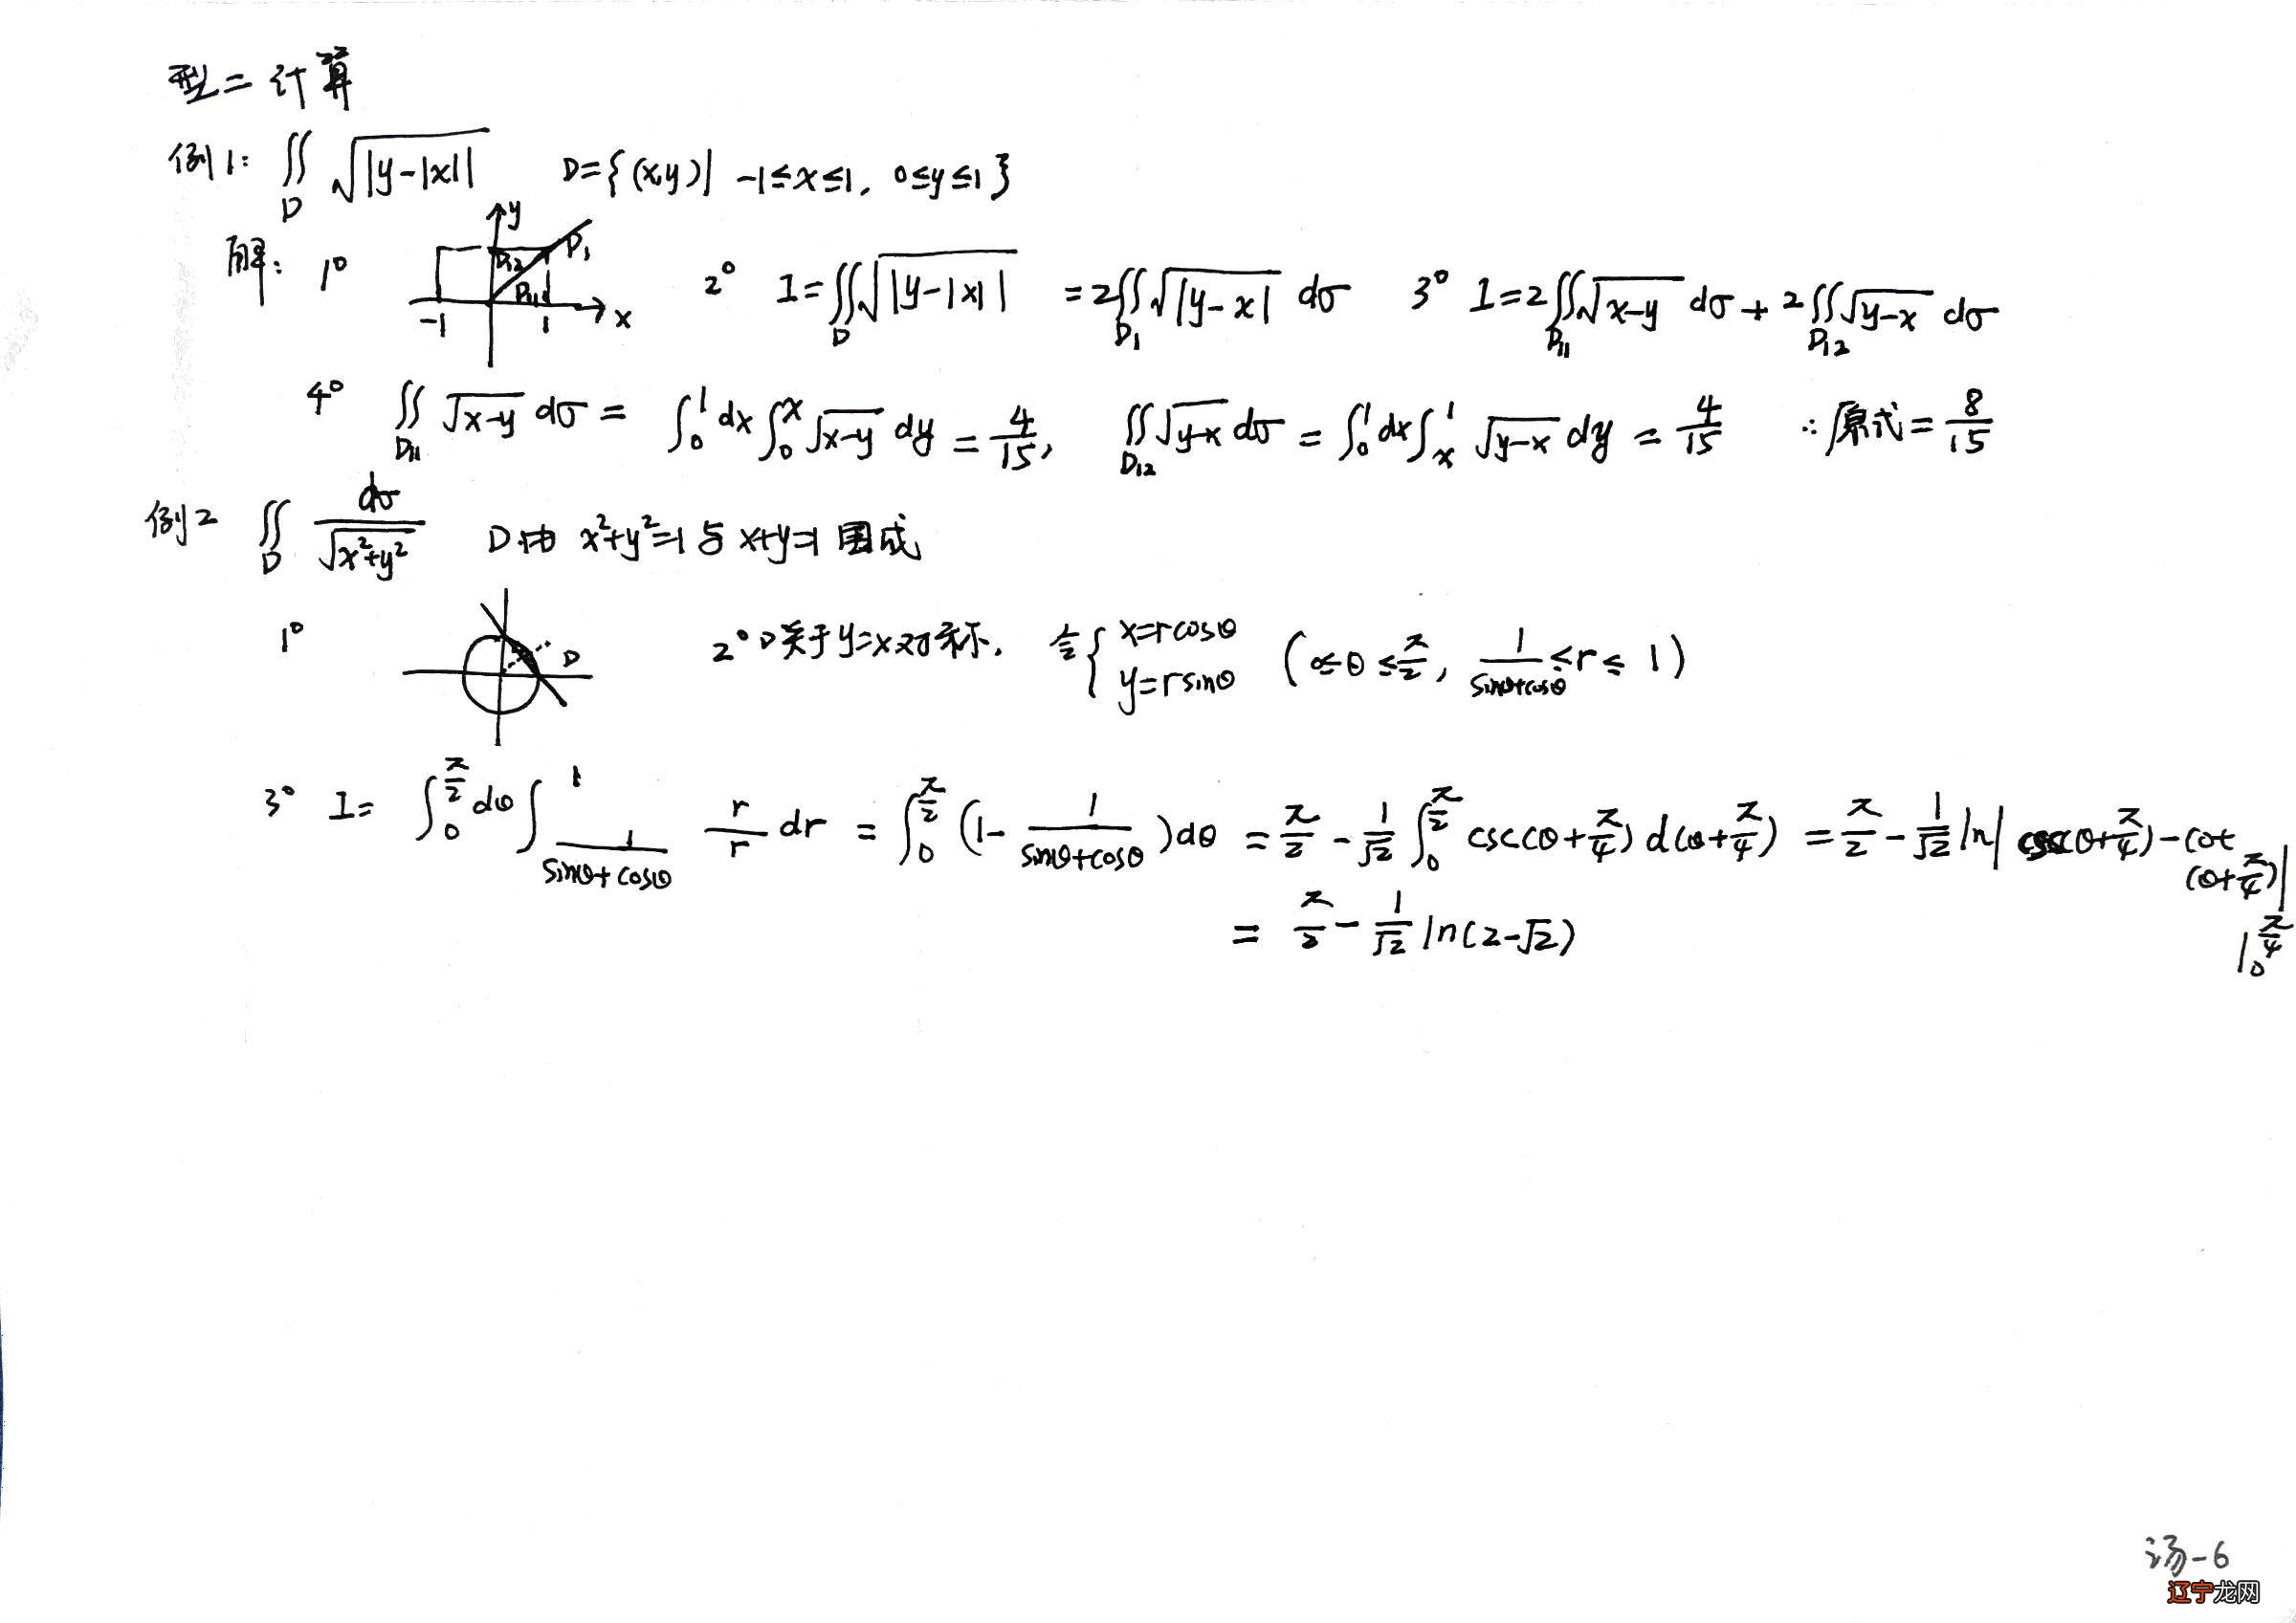 型二 计算
例1: ∬_D √|y-|x|| D={(x,y)| -1≤x≤1, 0≤y≤1}
解: 1° y D₁ D₁₂ D₁₁ -1 1 x 2° I=∬_D √|y-|x|| =2∬_{D₁} √|y-x| dσ 3° I=2∬_{D₁₁} √(x-y) dσ + 2∬_{D₁₂} √(y-x) dσ
4° ∬_{D₁₁} √(x-y) dσ = ∫₀¹ dx ∫₀ˣ √(x-y) dy = 4/15, ∬_{D₁₂} √(y-x) dσ = ∫₀¹ dx ∫ₓ¹ √(y-x) dy = 4/15 ∴原式 = 8/15
例2 ∬_D dσ/√(x²+y²) D由 x²+y²=1 与 x+y=1 围成
1° D 2° D关于y=x对称. 令{x=rcosθ y=rsinθ (0≤θ≤π/2, 1/(sinθ+cosθ) ≤r≤ 1)
3° I= ∫₀^{π/2} dθ ∫_{1/(sinθ+cosθ)}^1 r/r dr = ∫₀^{π/2} (1- 1/(sinθ+cosθ))dθ = π/2 - 1/√2 ∫₀^{π/2} csc(θ+π/4) d(θ+π/4) = π/2 - 1/√2 ln| csc(θ+π/4)-cot(θ+π/4)| |₀^{π/4}
= π/2 - 1/√2 ln(2-√2)
汤-6
辽宁龙网